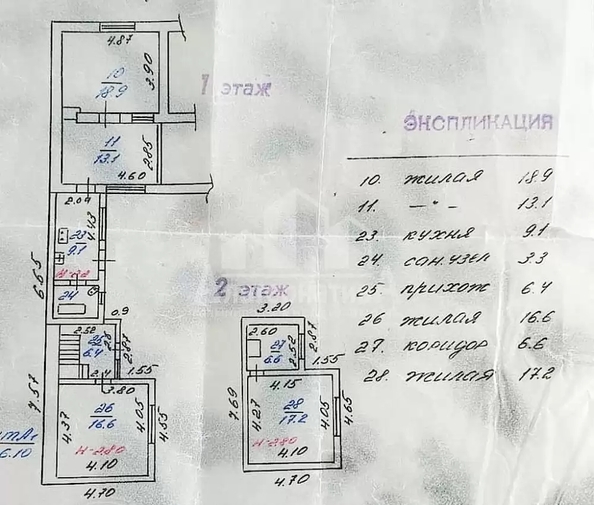 4.87
10
18.9
3.90
1 этаж
11
13.1
2.85
4.60
2.04
4.43
23
9.1
6.65
24
0.9
2.52
25
6.4
2.87
1.55
2.4
3.80
7.57
4.37
26
16.6
4.05
4.55
Н-280
4.10
4.70
6.10
2 этаж
3.20
2.60
27
6.6
2.52
2.87
1.55
4.15
7.69
4.27
28
17.2
4.05
4.65
Н-280
4.10
4.70
ЭКСПЛИКАЦИЯ
10. жилая 18.9
11. —〃— 13.1
23. кухня 9.1
24. сан.узел 3.3
25 прихож 6.4
26 жилая 16.6
27. коридор 6.6
28. жилая 17.2